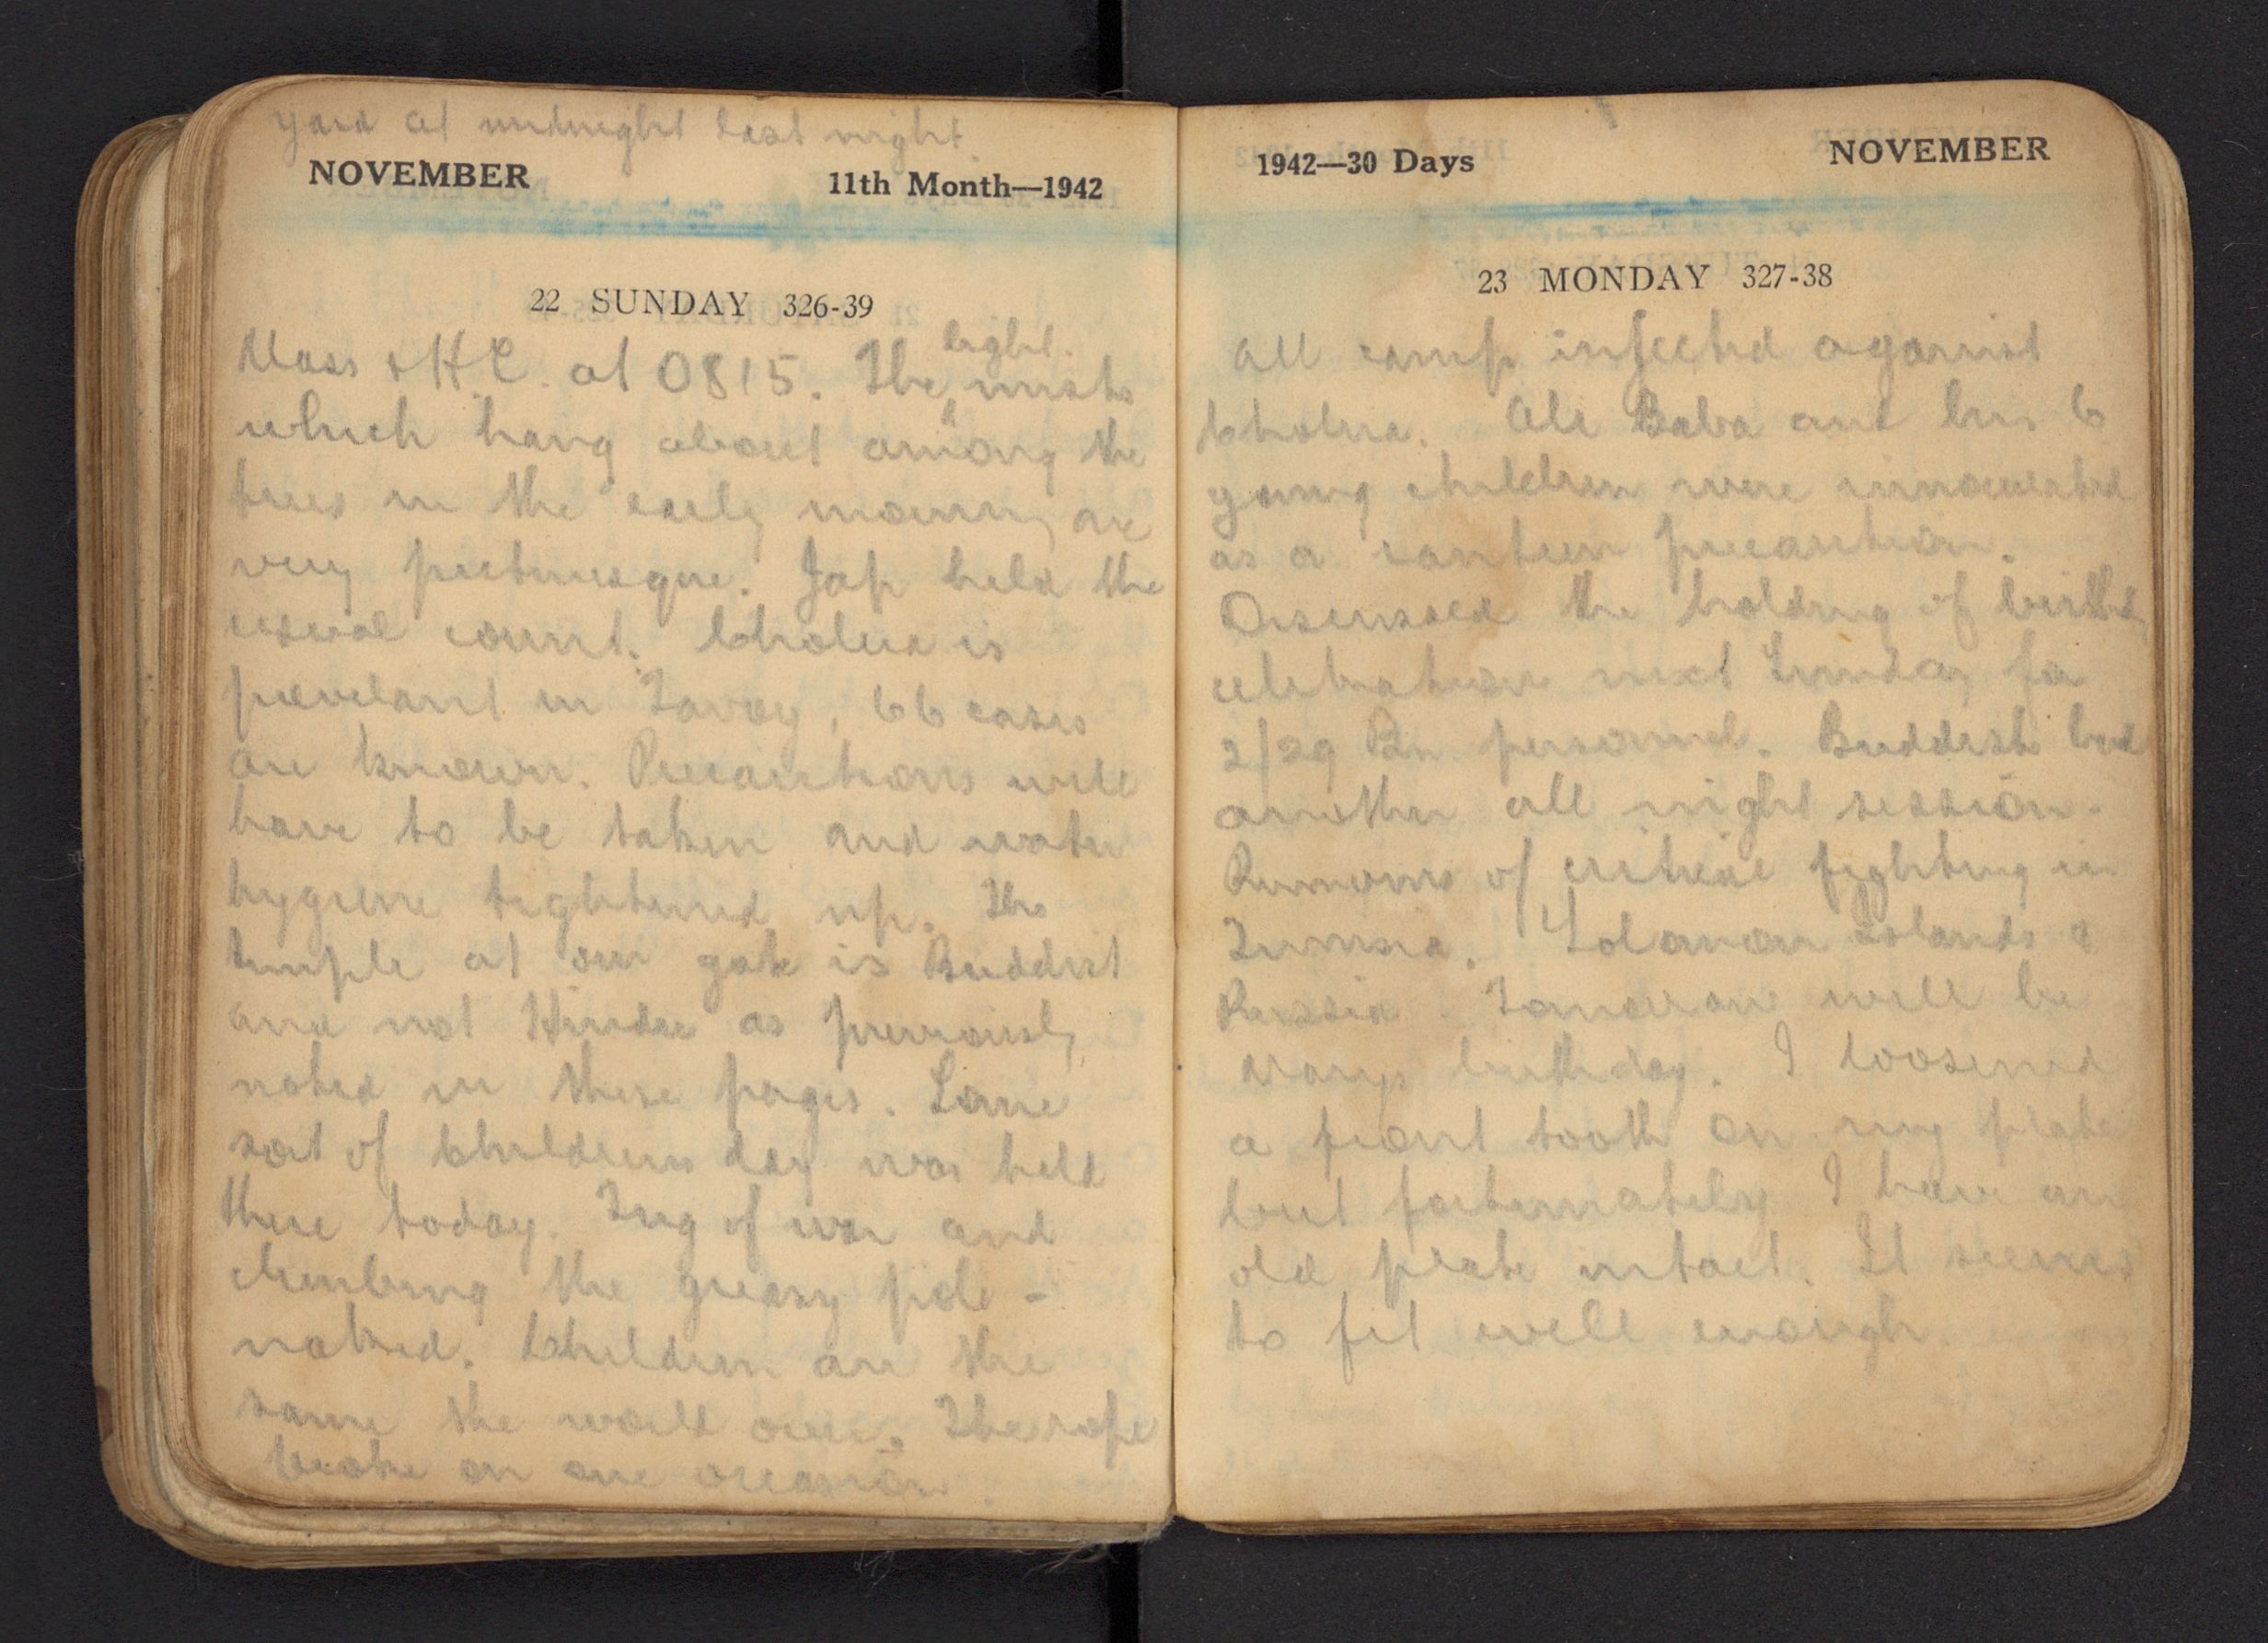 yard at midnight last night.
NOVEMBER 11th Month—1942
22 SUNDAY 326-39
light.
Mass & H.C. at 0815. The mists
which hang about among the
trees in the early morning are
very picturesque. Jap held the
usual count. Cholera is
prevelant in Tavoy, 66 cases
are known. Precautions will
have to be taken and water
hygiene tightened up. The
temple at our gate is Buddist
and not Hindu as previously
noted in these pages. Some
sort of childrens day was held
there today. Tug of war and
climbing the greasy pole -
naked. Children are the
same the world over. The rope
broke on one occasion.
1942—30 Days NOVEMBER
23 MONDAY 327-38
All camp injected against
Cholera. Ali Baba and his 6
young children were innoculated
as a canteen precaution.
Discussed the holding of birthday
celebration next Sunday for
2/29 Bn personnel. Buddists had
another all night session.
Rumours of critical fighting in
Tunisia. Soloman Islands &
Russia. Tomorrow will be
Marys birthday. I loosened
a front tooth on my plate
but fortunately I have an
old plate intact. It seems
to fit well enough.